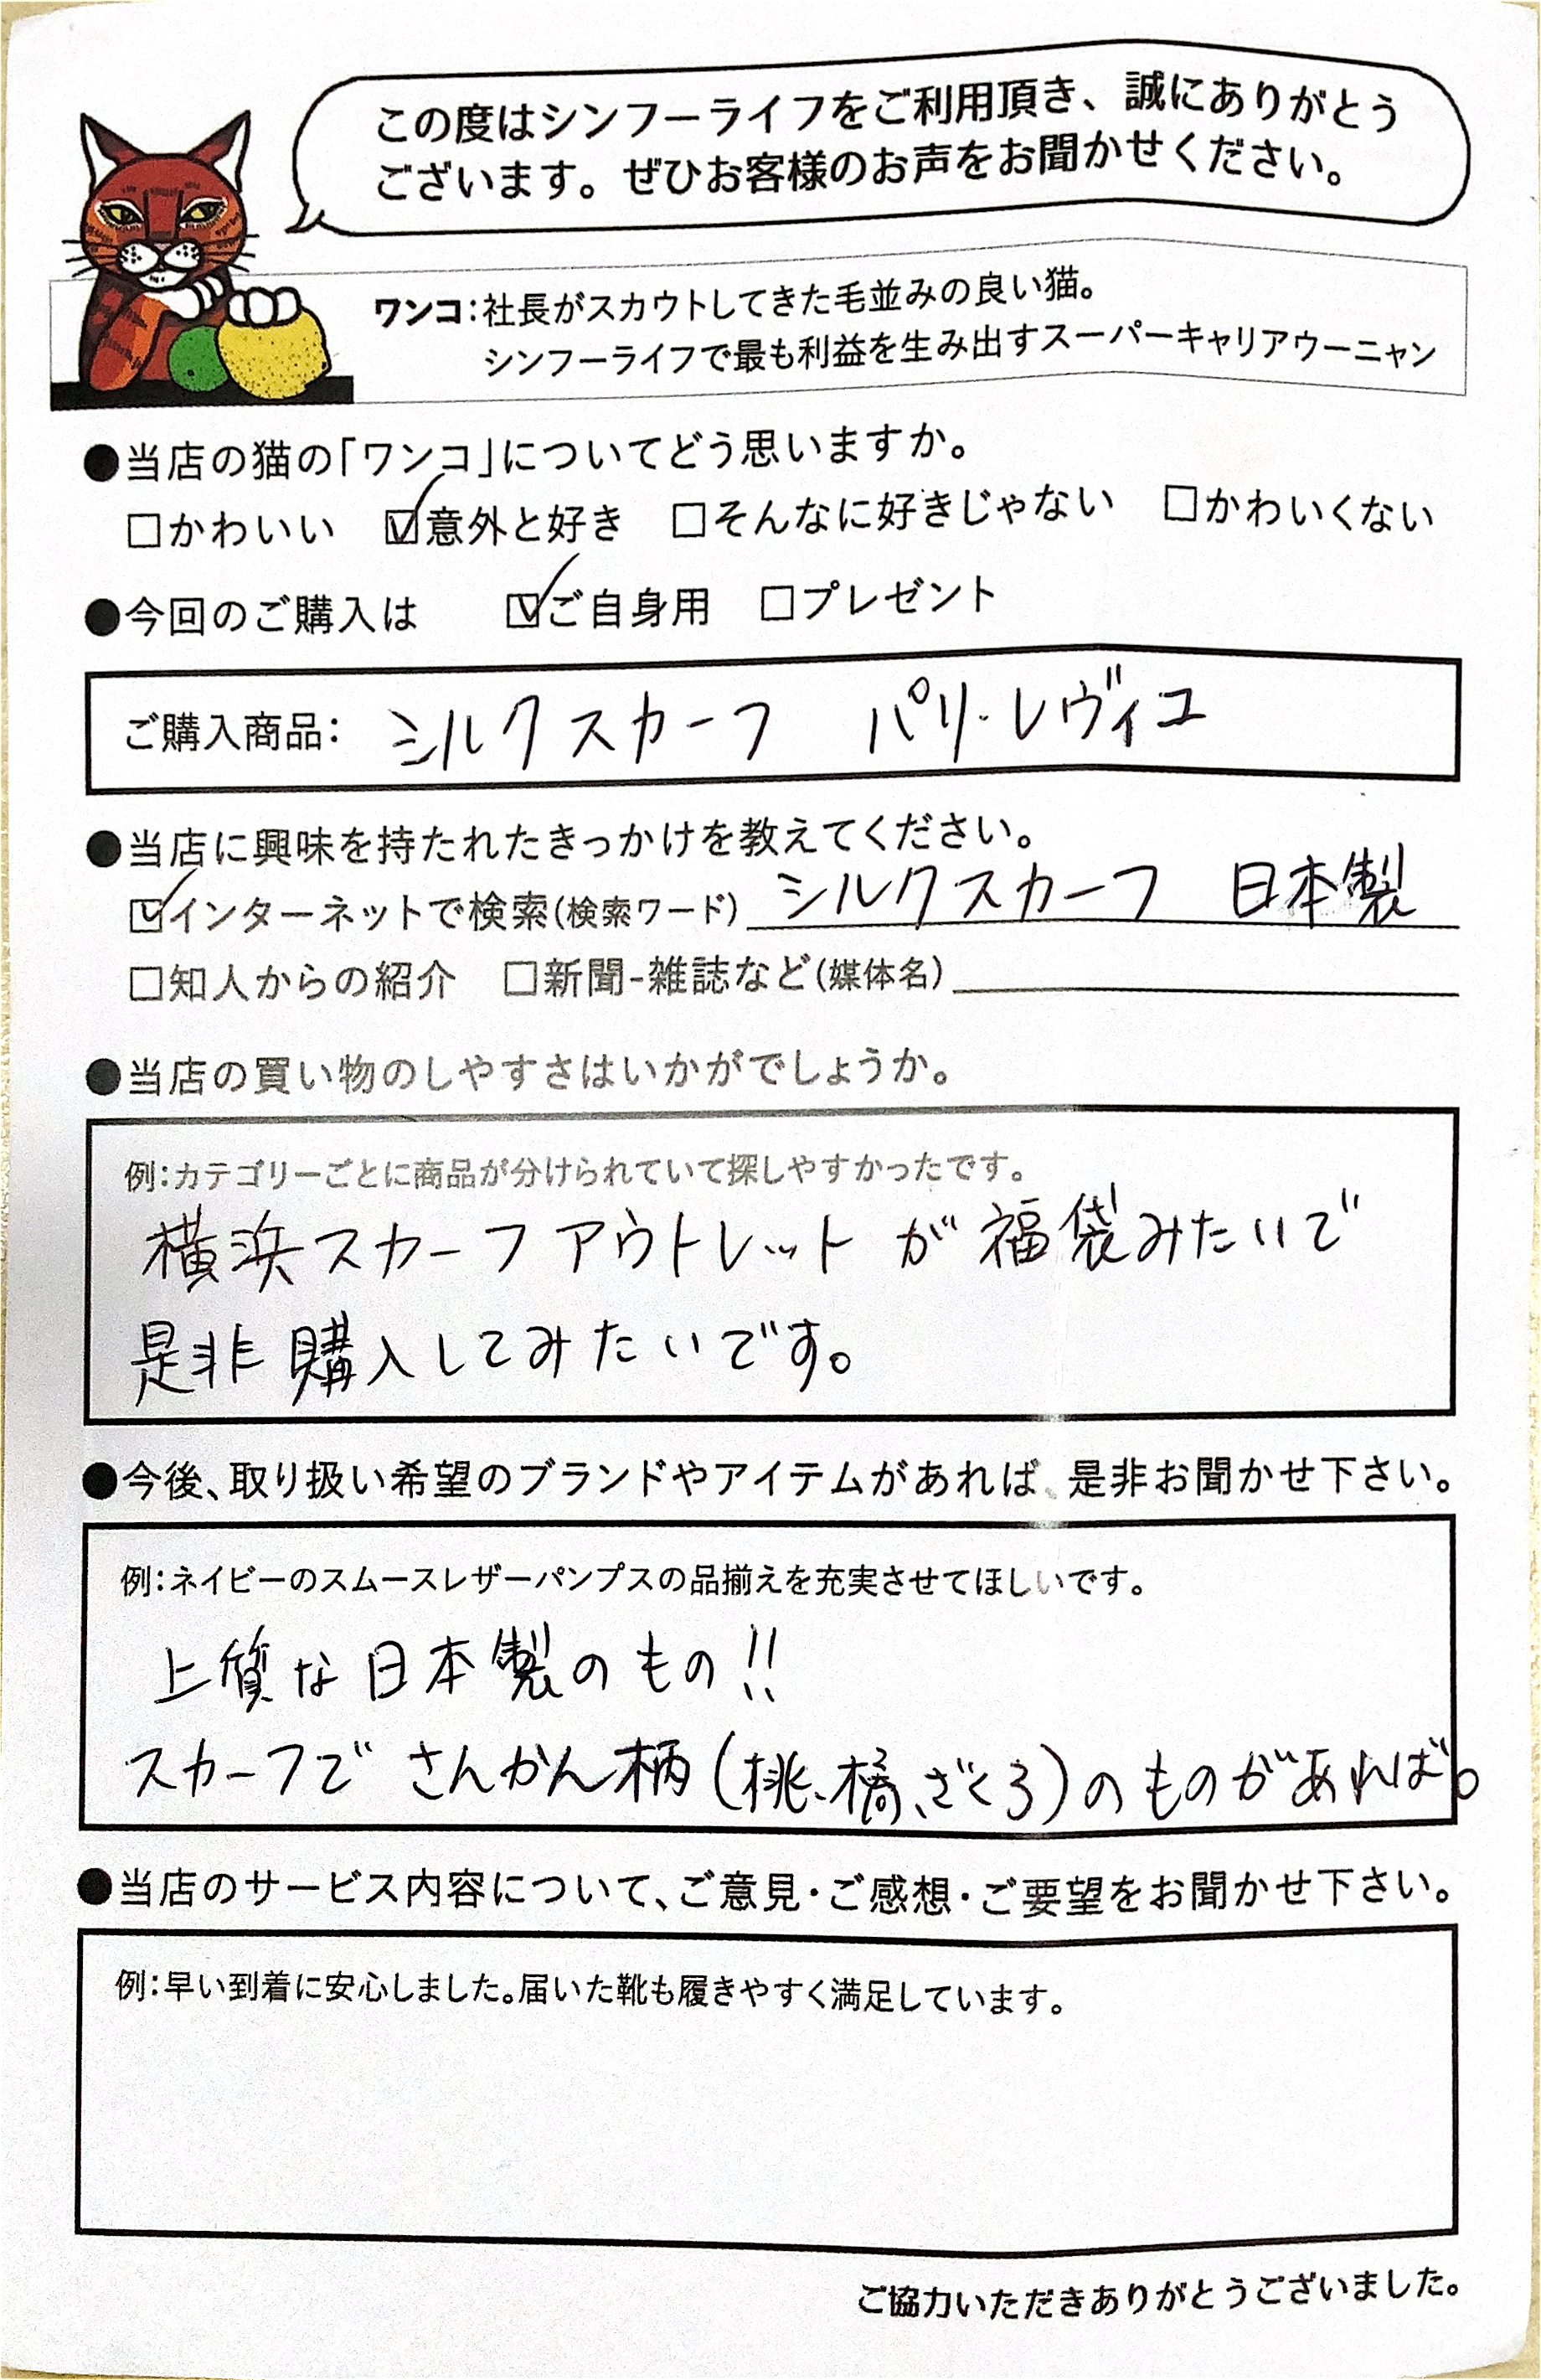 この度はシンフーライフをご利用頂き、誠にありがとう
ございます。ぜひお客様のお声をお聞かせください。
ワンコ：社長がスカウトしてきた毛並みの良い猫。
シンフーライフで最も利益を生み出すスーパーキャリアウーニャン
●当店の猫の「ワンコ」についてどう思いますか。
□かわいい ☑意外と好き □そんなに好きじゃない □かわいくない
●今回のご購入は ☑ご自身用 □プレゼント
ご購入商品： シルクスカーフ パリ・レヴィユ
●当店に興味を持たれたきっかけを教えてください。
☑インターネットで検索(検索ワード) シルクスカーフ 日本製
□知人からの紹介 □新聞-雑誌など(媒体名)
●当店の買い物のしやすさはいかがでしょうか。
例：カテゴリーごとに商品が分けられていて探しやすかったです。
横浜スカーフアウトレットが福袋みたいで
是非購入してみたいです。
●今後、取り扱い希望のブランドやアイテムがあれば、是非お聞かせ下さい。
例：ネイビーのスムースレザーパンプスの品揃えを充実させてほしいです。
上質な日本製のもの!!
スカーフで さんかん柄(桃、橘、ざくろ)のものがあれば。
●当店のサービス内容について、ご意見・ご感想・ご要望をお聞かせ下さい。
例：早い到着に安心しました。届いた靴も履きやすく満足しています。
ご協力いただきありがとうございました。